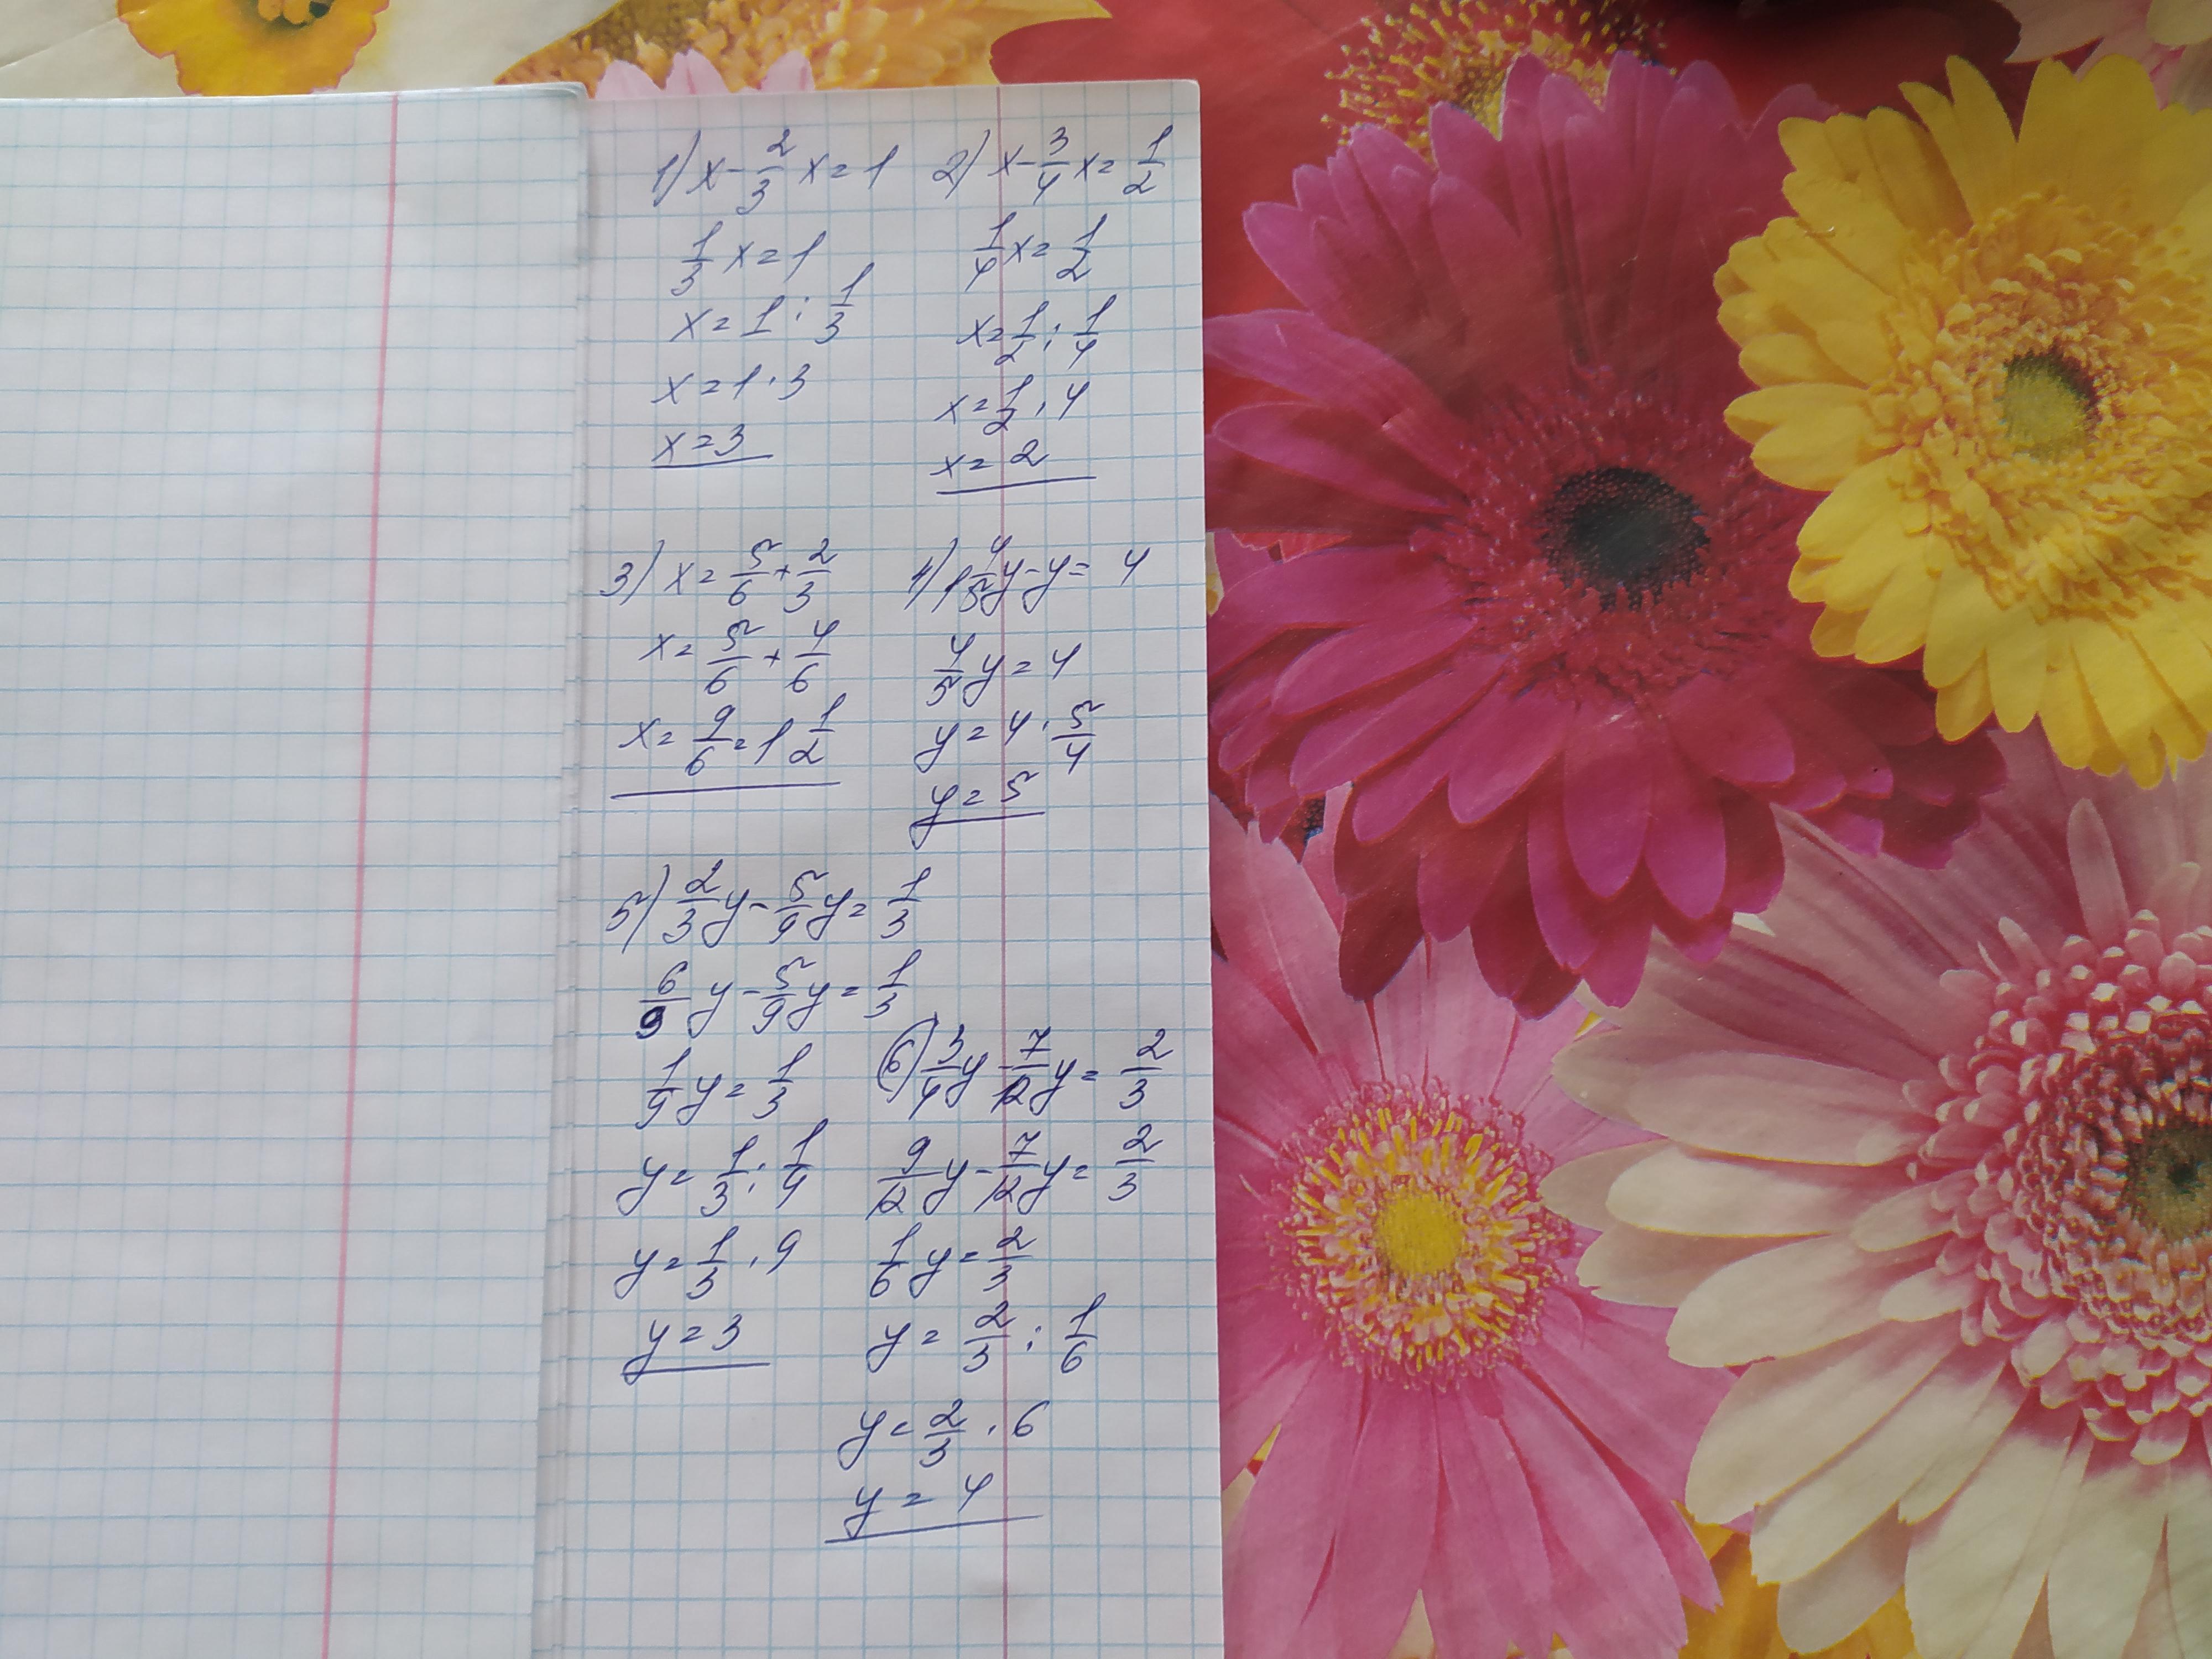 1) x - 2/3 x = 1
1/3 x = 1
x = 1 : 1/3
x = 1 · 3
x = 3
2) x - 3/4 x = 1/2
1/4 x = 1/2
x = 1/2 : 1/4
x = 1/2 · 4
x = 2
3) x = 5/6 + 2/3
x = 5/6 + 4/6
x = 9/6 = 1 1/2
4) 1 4/5 y - y = 4
4/5 y = 4
y = 4 · 5/4
y = 5
5) 2/3 y - 5/9 y = 1/3
6/9 y - 5/9 y = 1/3
1/9 y = 1/3
y = 1/3 : 1/9
y = 1/3 · 9
y = 3
6) 3/4 y - 7/12 y = 2/3
9/12 y - 7/12 y = 2/3
1/6 y = 2/3
y = 2/3 : 1/6
y = 2/3 · 6
y = 4